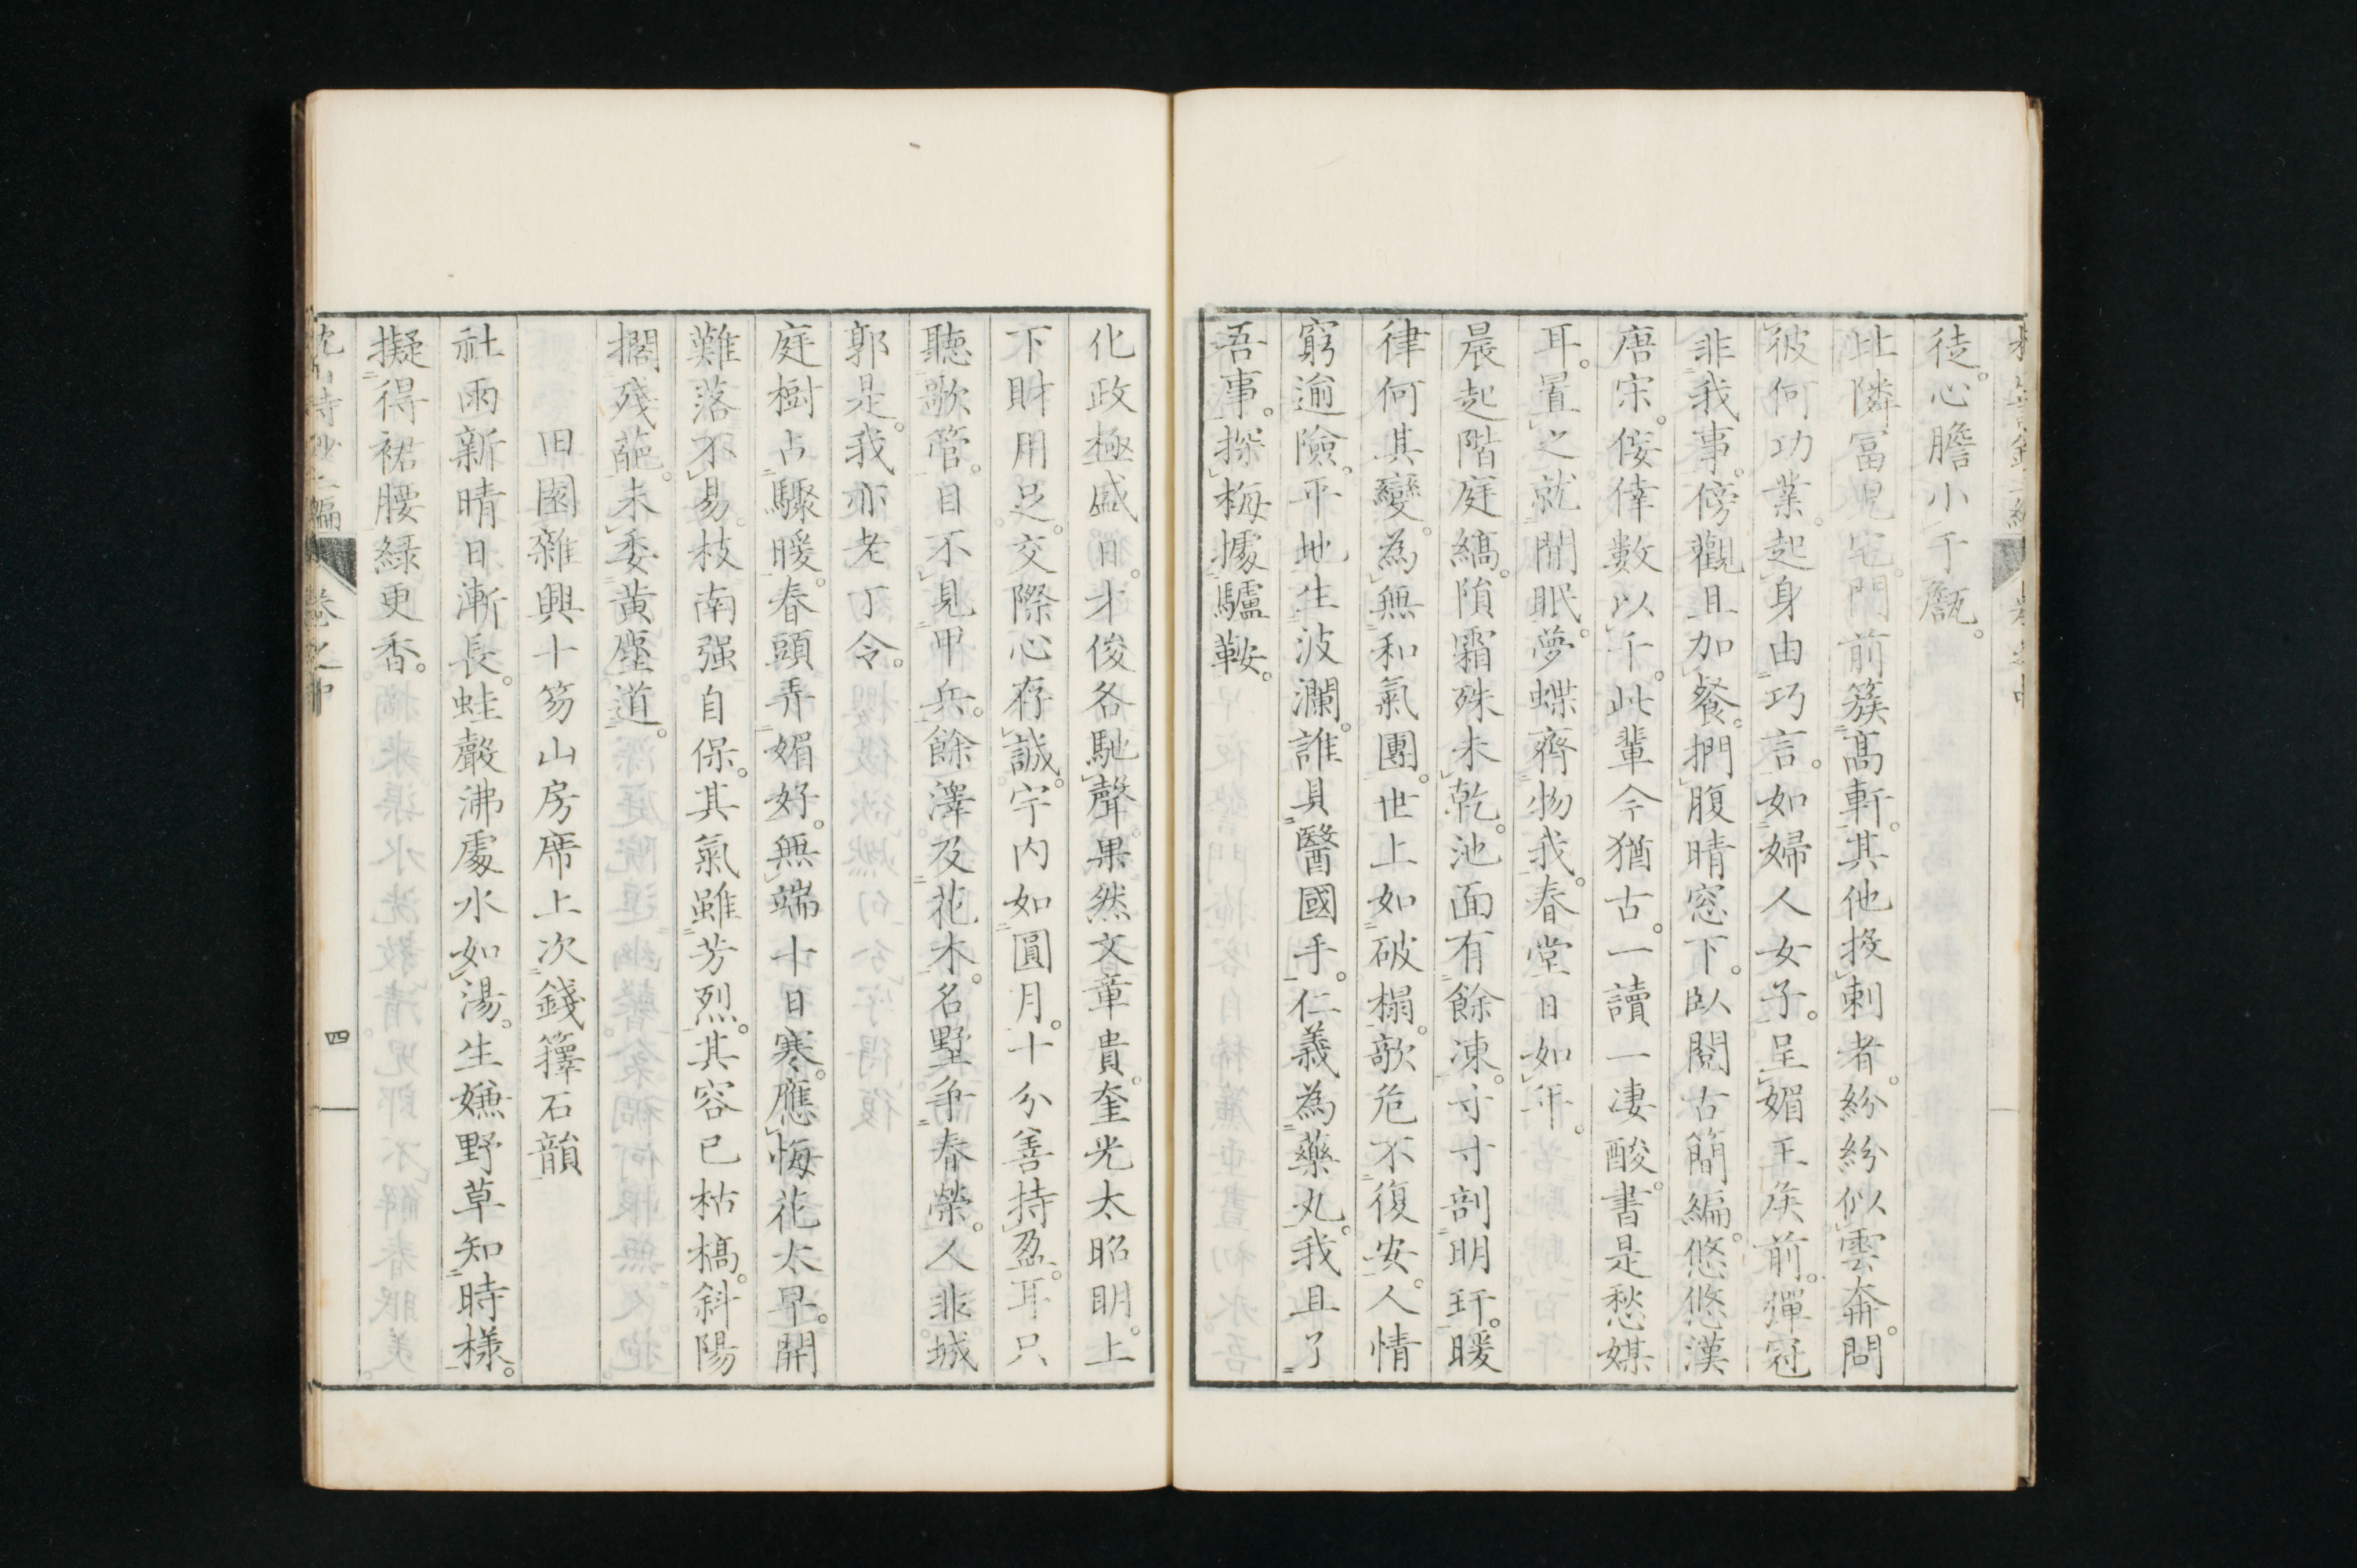 徒。心膽小于甔。
比隣冨児宅。門前簇高軒。其他投刺者。紛紛似雲奔。問
彼何功業。起身由巧言。如婦人女子。呈媚王侯前。彈冠
非我事。傍觀且加餐。捫腹晴窓下。臥閲古簡編。悠悠漢
唐宋。倿倖數以千。此輩今猶古。一讀一凄酸。書是愁媒
耳。置之就閒眠。夢蝶齊物我。春堂日如年。
晨起階庭縞。隕霜殊未乾。池面有餘凍。寸寸剖明玕。暖
律何其變。為無和氣團。世上如破榻。欹危不復安。人情
窮逾險。平地生波瀾。誰具醫國手。仁義為藥丸。我且了
吾事。探梅據驢鞍。
化政極盛日。才俊各馳聲。果然文章貴。奎光太昭明。上
下財用足。交際心存誠。宇内如圓月。十分善持盈。耳只
聽歌管。目不見甲兵。餘澤及花木。名墅爭春榮。人非城
郭是。我亦老丁令。
庭樹占驟暖。春頭弄媚好。無端十日寒。應悔花太早。開
難落不易。枝南强自保。其氣雖芳烈。其容已枯槁。斜陽
擱殘葩。未委黃塵道。
田園雜興十笏山房席上次錢籜石韻
社雨新晴日漸長。蛙聲沸處水如湯。生嫌野草知時樣。
擬得裙腰綠更香。
編 卷之中
四